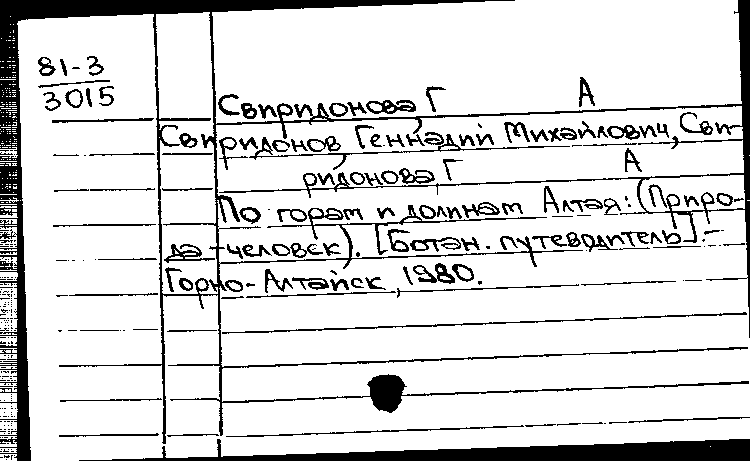 81-3
3015
Свиридонова, Г А
Свиридонов, Геннадий Михайлович, Сви-
ридонова, Г А
По горам и долинам Алтая: (Приро-
да-человек). [Ботан. путеводитель].-
Горно-Алтайск, 1980.